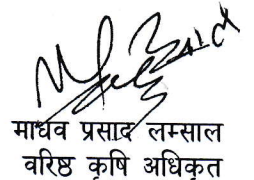 माधव प्रसाद लम्साल
वरिष्ठ कृषि अधिकृत